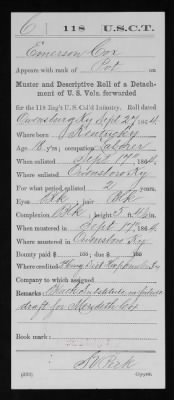 C | 118 | U.S.C.T.
Emerson Cox
Appears with rank of Pvt on
Muster and Descriptive Roll of a Detachment of U. S. Vols. forwarded
for the 118 Reg't U. S. Col'd Infantry. Roll dated
Owensboro Ky Sept 27, 1864.
Where born Kentucky
Age 18 y'rs; occupation Laborer
When enlisted Sept 17, 1864.
Where enlisted Owensboro Ky
For what period enlisted 2 years.
Eyes Blk; hair Blk
Complexion Blk; height 5 ft. in.
When mustered in Sept 17, 1864.
Where mustered in Owensboro Ky
Bounty paid $ 100; due $ 100
Where credited
Company to which assigned
Remarks: Substitute in future
draft for Cox
Book mark:
(339) Copyist.